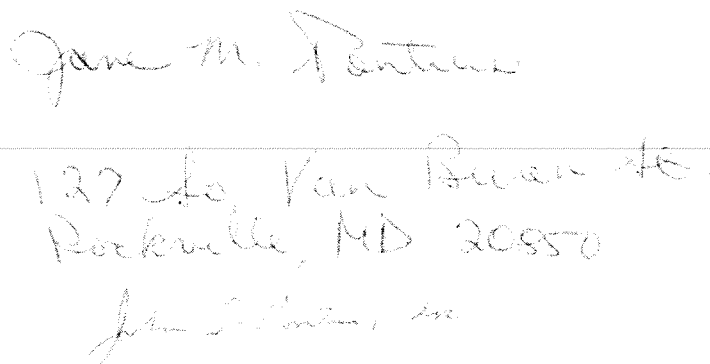 Jane M. Pontius
127 So. Van Buren St.
Rockville, MD 20850
John